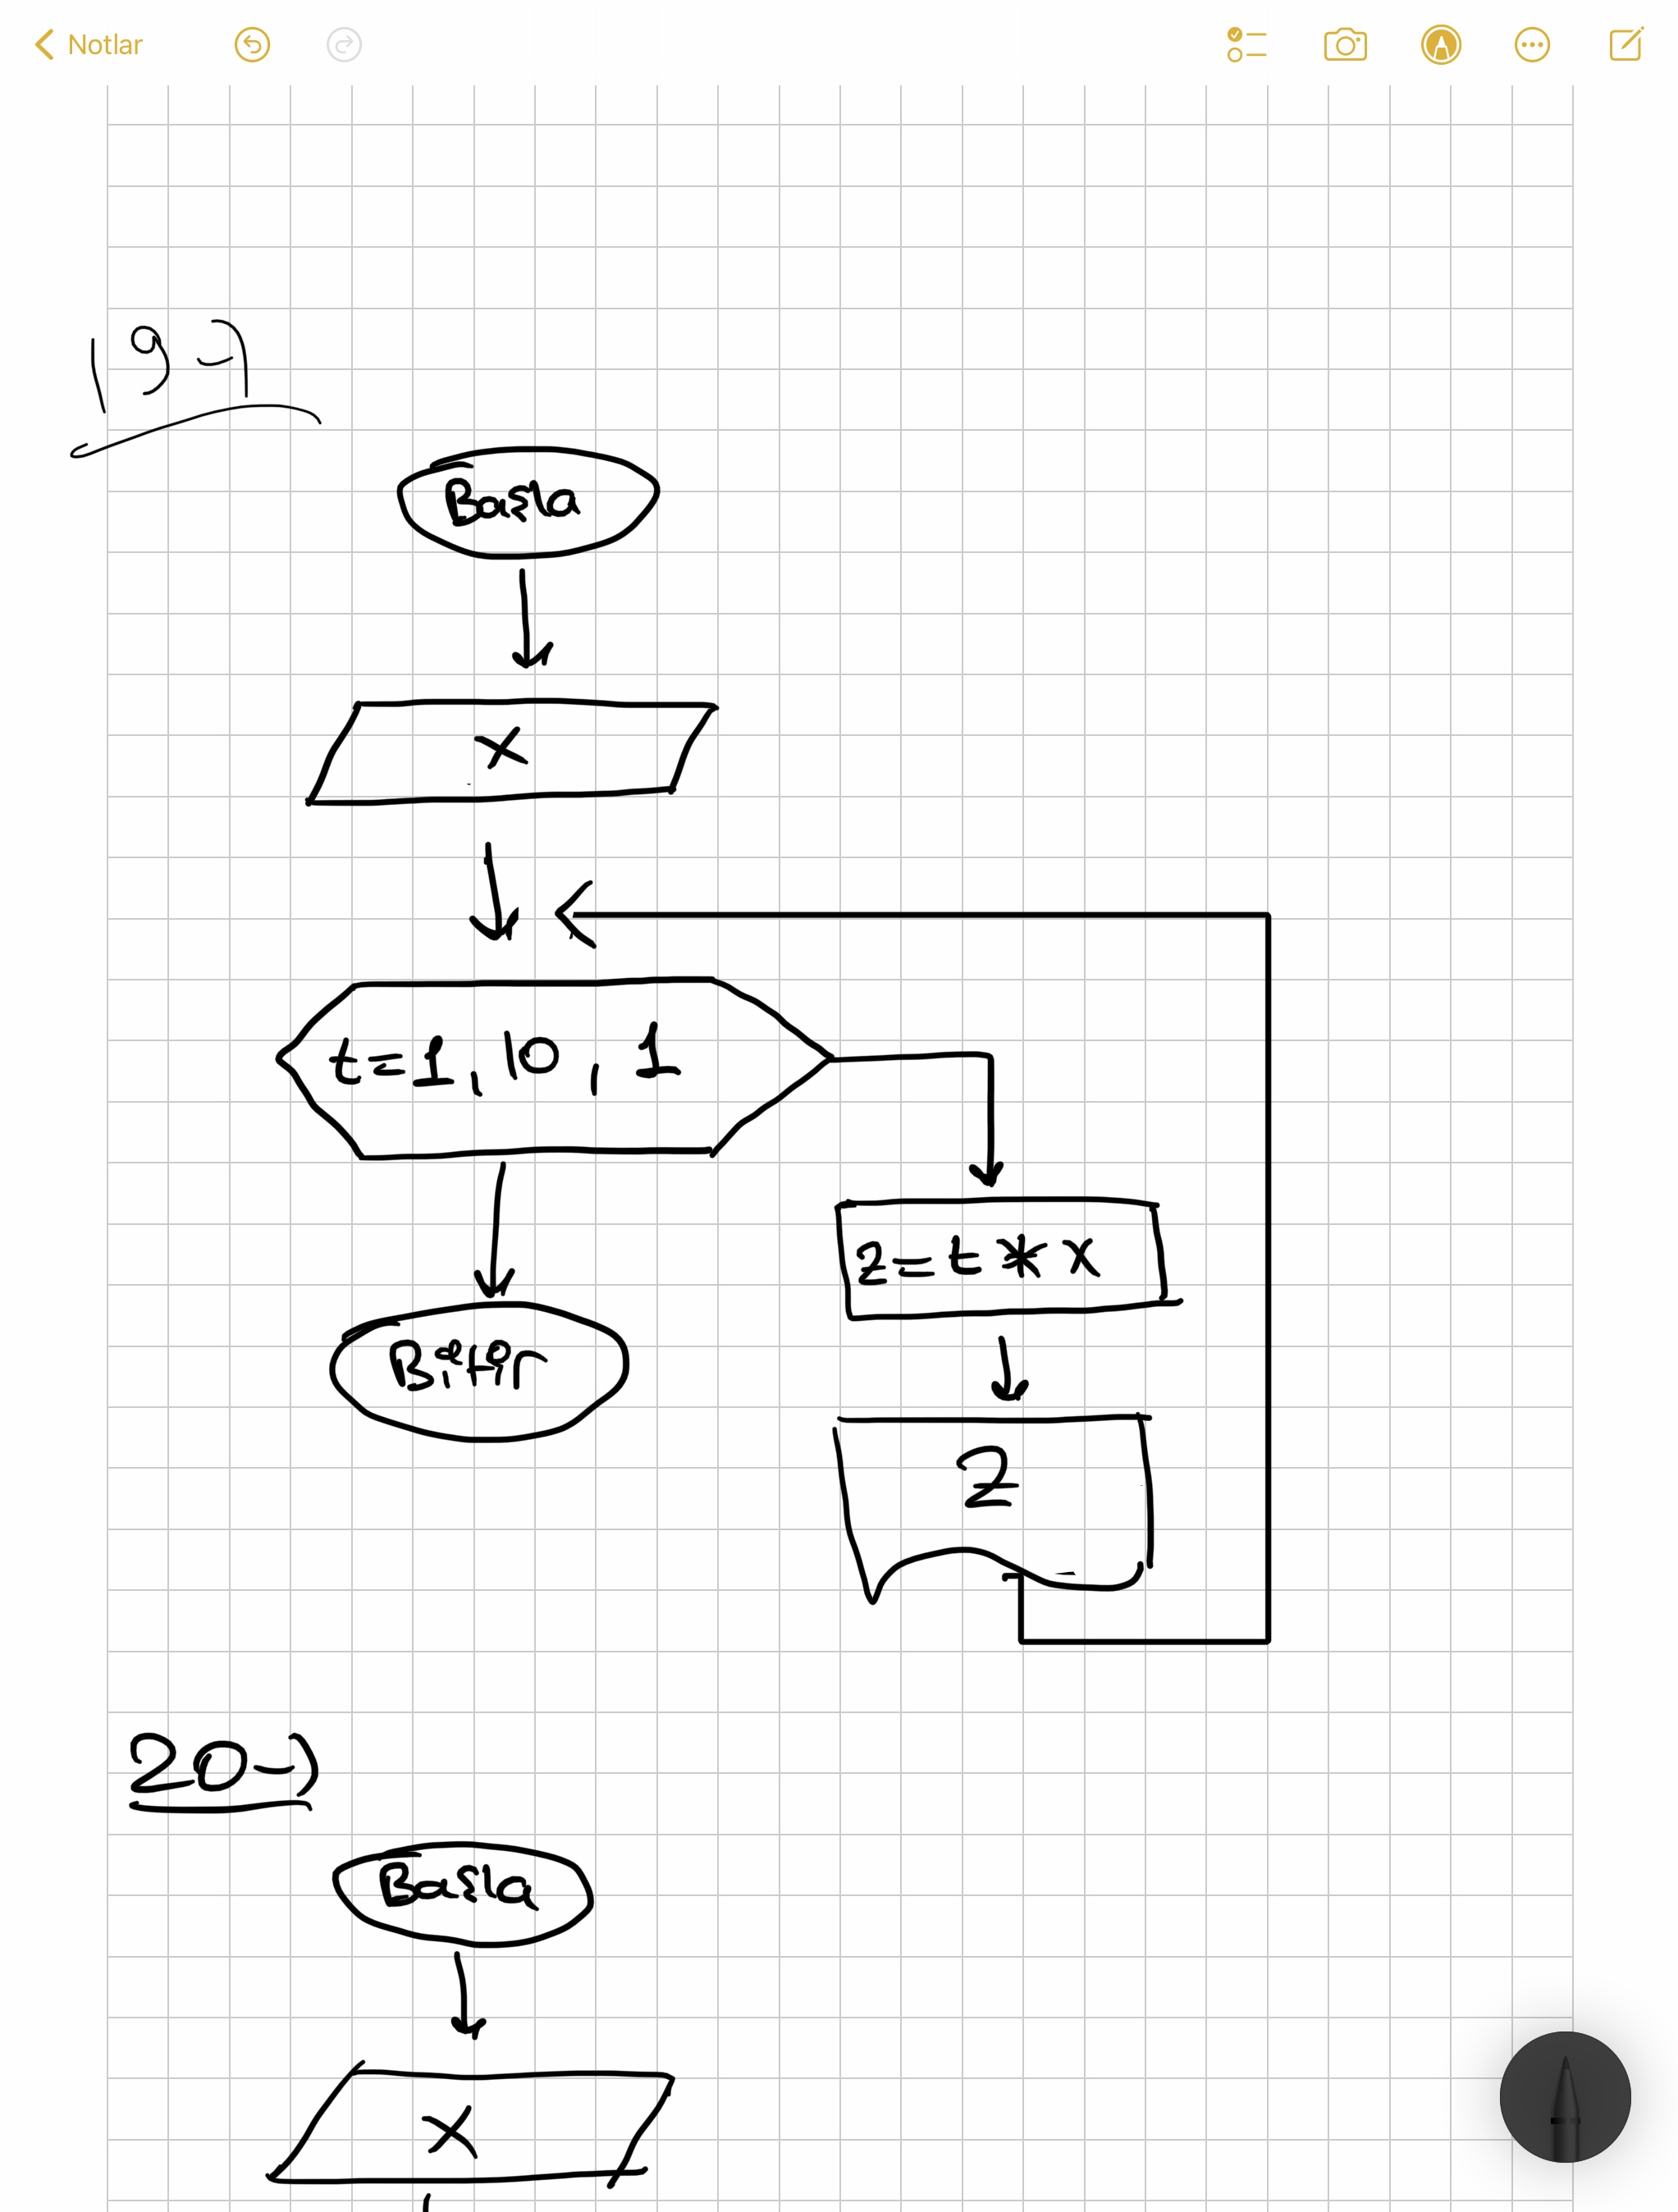 Notlar
19-)
Başla
x
t=1,10,1
z=t*x
Bitir
z
20-)
Başla
x